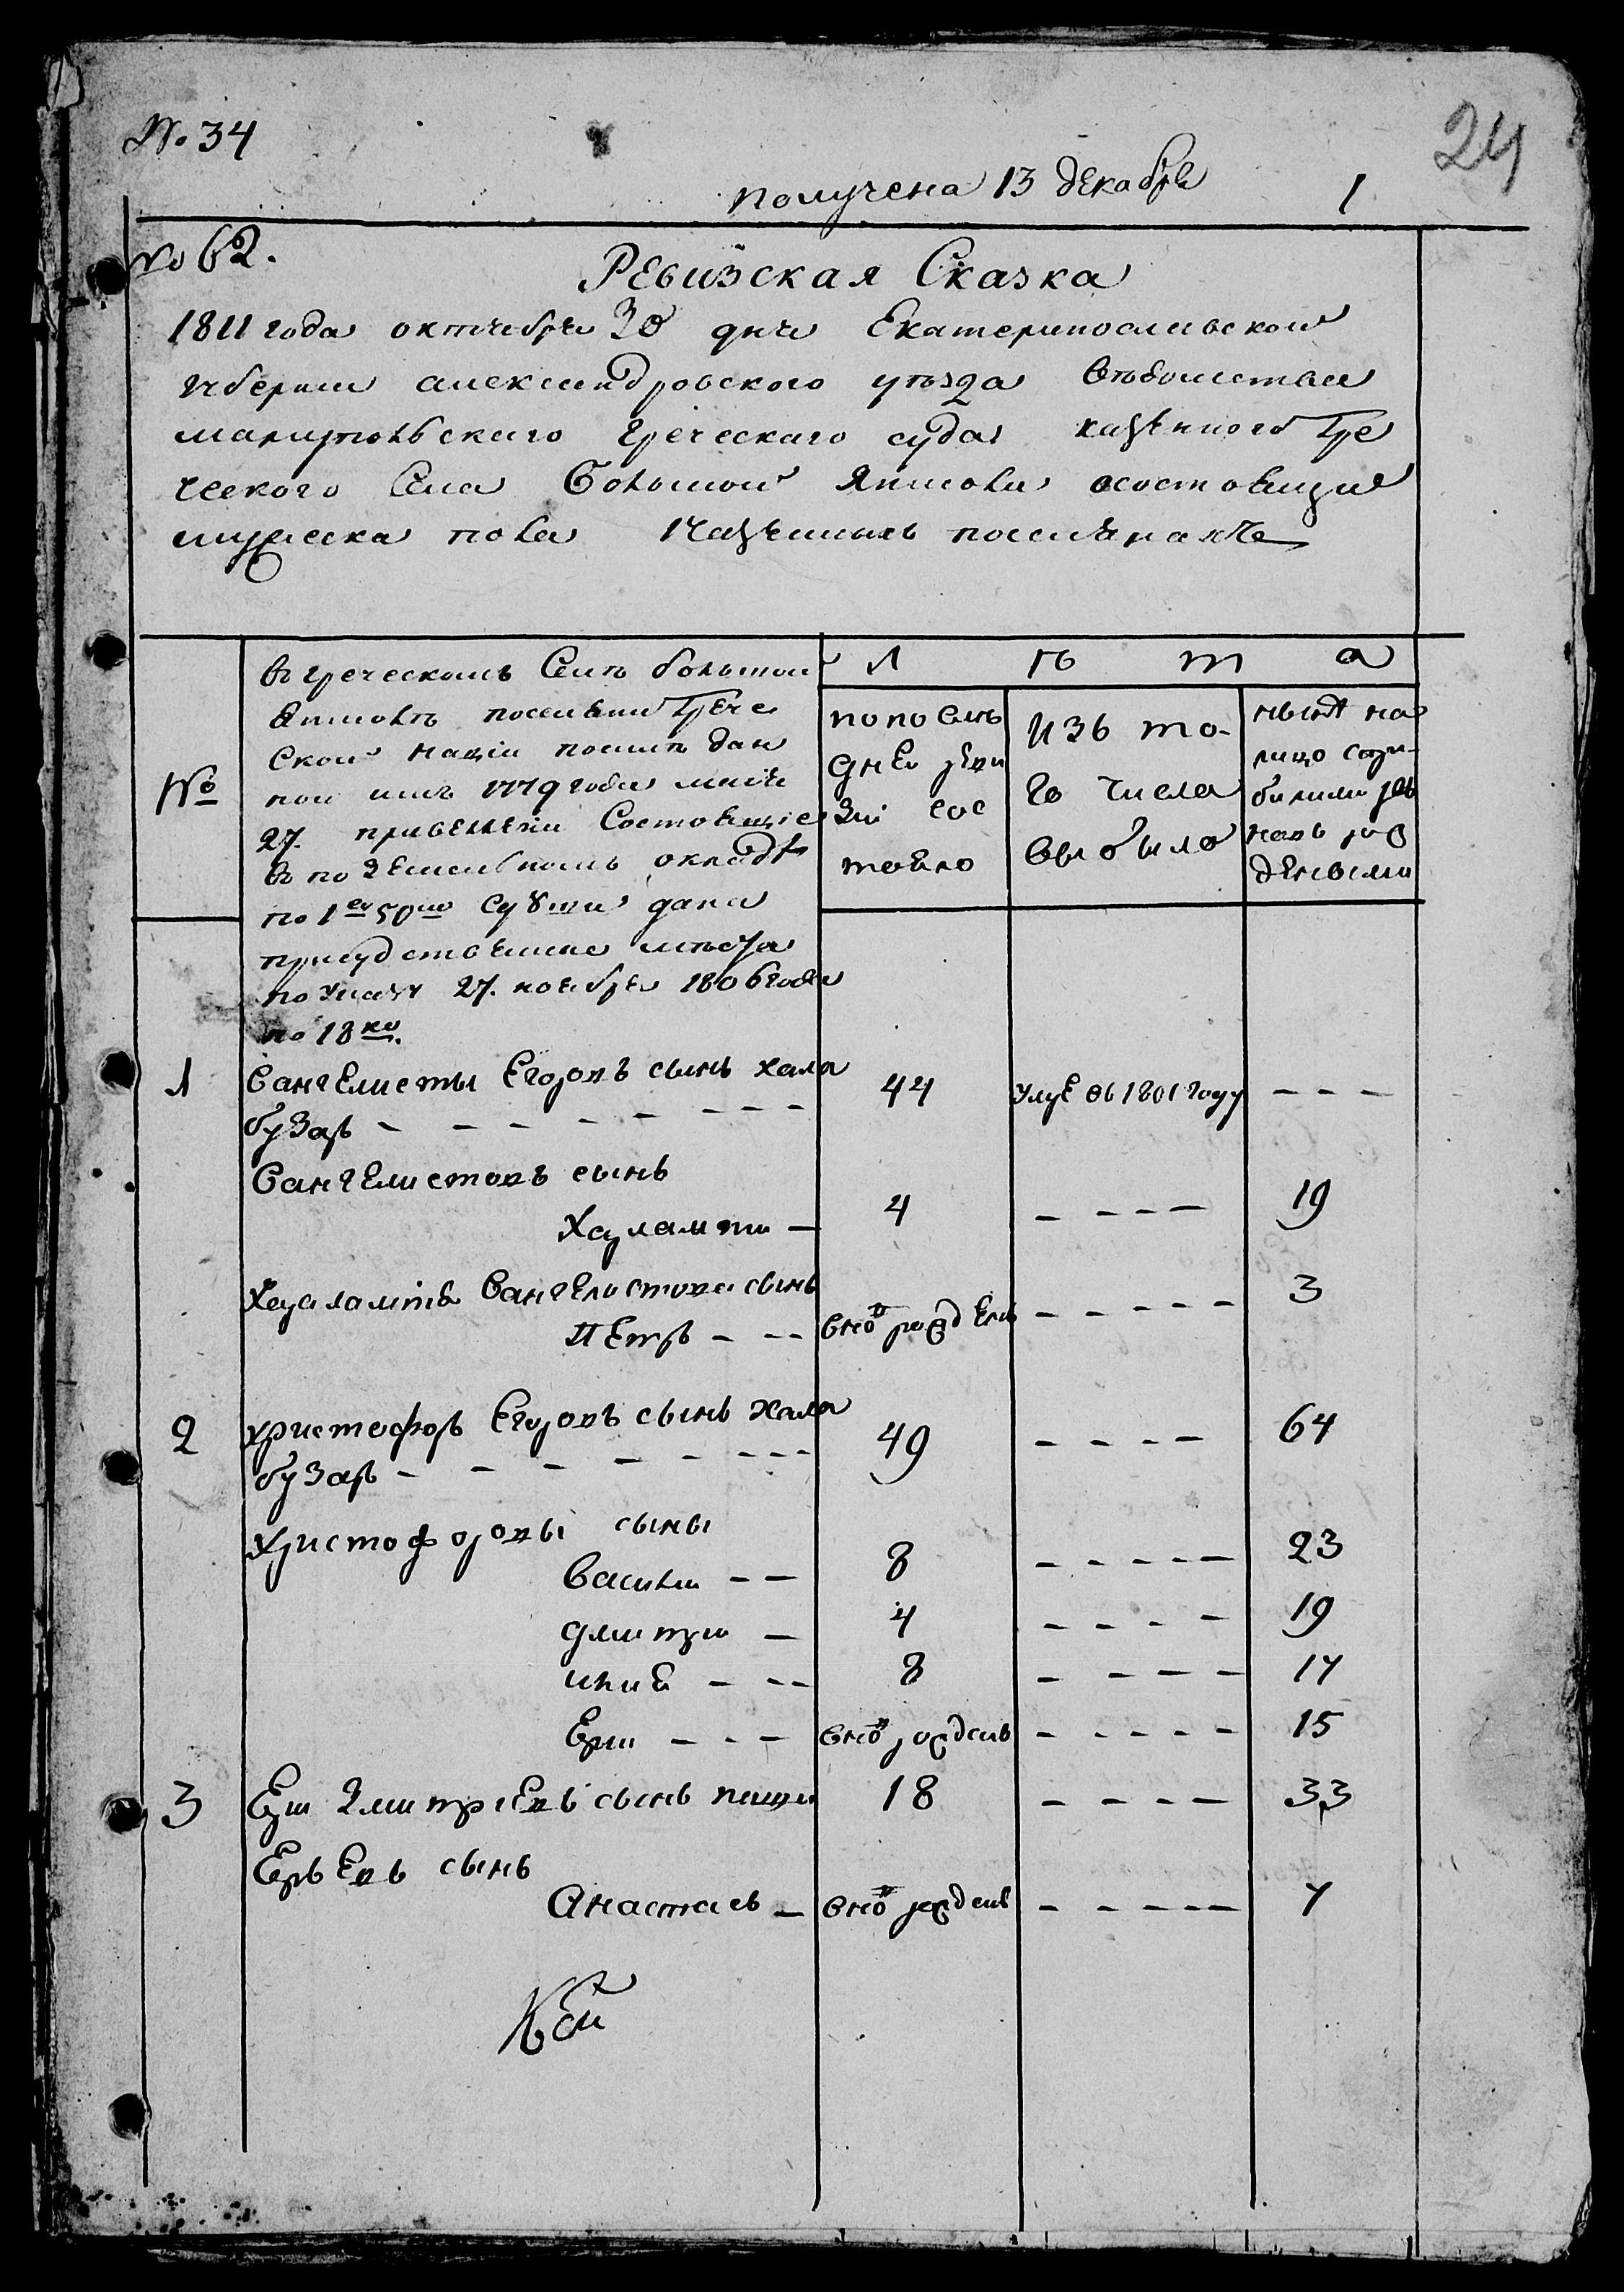 № 34
24
получена 13 декабря
1
№ 62.
Ревизская Сказка
1811 года октября 30 дня Екатеринославской
губернии александровского уезда ведомства
мариупольскаго греческаго суда казенного Гре
ческого Села Большой Янисоли состоящи
мужеска пола казенныхъ поселянахъ
Л ѣ т а
въ греческомъ Селѣ большой
Янисолѣ поселяни Грече
ской нации посилѣ дан
ной имъ 1779 года маия
27. привелегии Состоящие
въ по земелномъ окладѣ
по 1ей 50ти
присудственные места
по указу 27. ноября 1806 года
по 18ко.
№
по по слѣ
дней реви
зии сос
тояло
Изъ то-
го числа
выбыло
нынѣ на
лицо съ при-
былими рож
денными
1 Вангелисты Егоровъ сынъ хала 44 умре въ 1801 году - - -
бузаръ - - - - - - - -
Вангелистовъ сынъ
Харлампи — 4 - - - - 19
Харлампия Вангелистова сынъ 3
Петръ - - - вновь рожденъ - - - - -
2 христофоръ Егоровъ сынъ хала 49 - - - - 64
бузаръ - - - - - - - -
христофоровы сыны
Василий - - 8 - - - - - 23
Дмитри — 4 - - - - 19
илия - - - 8 - - - - 17
Ери - - - вновь рожденъ - - - - - 15
3 Ери Дмитриевъ сынъ 18 - - - - 33
Ерьевъ сынъ
Анастасъ — вновь рожденъ - - - - - 7